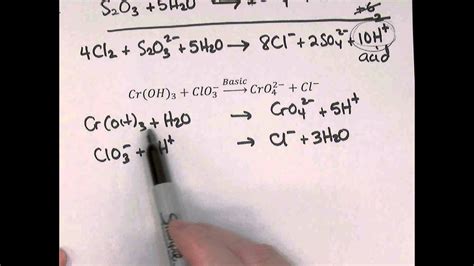 S₂O₃ + 5H₂O
2
4Cl₂ + S₂O₃²⁻ + 5H₂O → 8Cl⁻ + 2SO₄²⁻ + 10H⁺
acid
Cr(OH)₃ + ClO₃⁻ Basic → CrO₄²⁻ + Cl⁻
Cr(OH)₃ + H₂O → CrO₄²⁻ + 5H⁺
ClO₃⁻ + H⁺ → Cl⁻ + 3H₂O
Sharpie